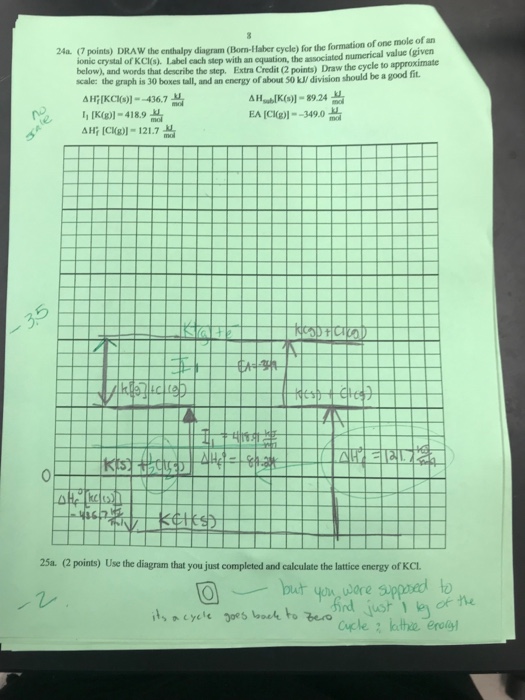 8
24a. (7 points) DRAW the enthalpy diagram (Born-Haber cycle) for the formation of one mole of an
ionic crystal of KCl(s). Label each step with an equation, the associated numerical value (given
below), and words that describe the step. Extra Credit (2 points) Draw the cycle to approximate
scale: the graph is 30 boxes tall, and an energy of about 50 kJ/ division should be a good fit.
ΔH°f [KCl(s)] = -436.7 kJ/mol ΔHsub[K(s)] = 89.24 kJ/mol
I₁ [K(g)] = 418.9 kJ/mol EA [Cl(g)] = -349.0 kJ/mol
ΔH°f [Cl(g)] = 121.7 kJ/mol
no scale
-3.5
K(g) + e⁻ K(g) + Cl(g)
I₁ EA = -349
K(g) + Cl(g) K(s) + Cl(g)
I₁ = 418.9 kJ/mol
K(s) + ½Cl₂(g) ΔHf° = 89.24 ΔHf° = 121.7 kJ/mol
0
ΔHf° [KCl(s)]
-436.7 kJ/mol KCl(s)
25a. (2 points) Use the diagram that you just completed and calculate the lattice energy of KCl.
-2
0 — but you were supposed to
its a cycle goes back to zero find just 1 leg of the
cycle : lattice energy